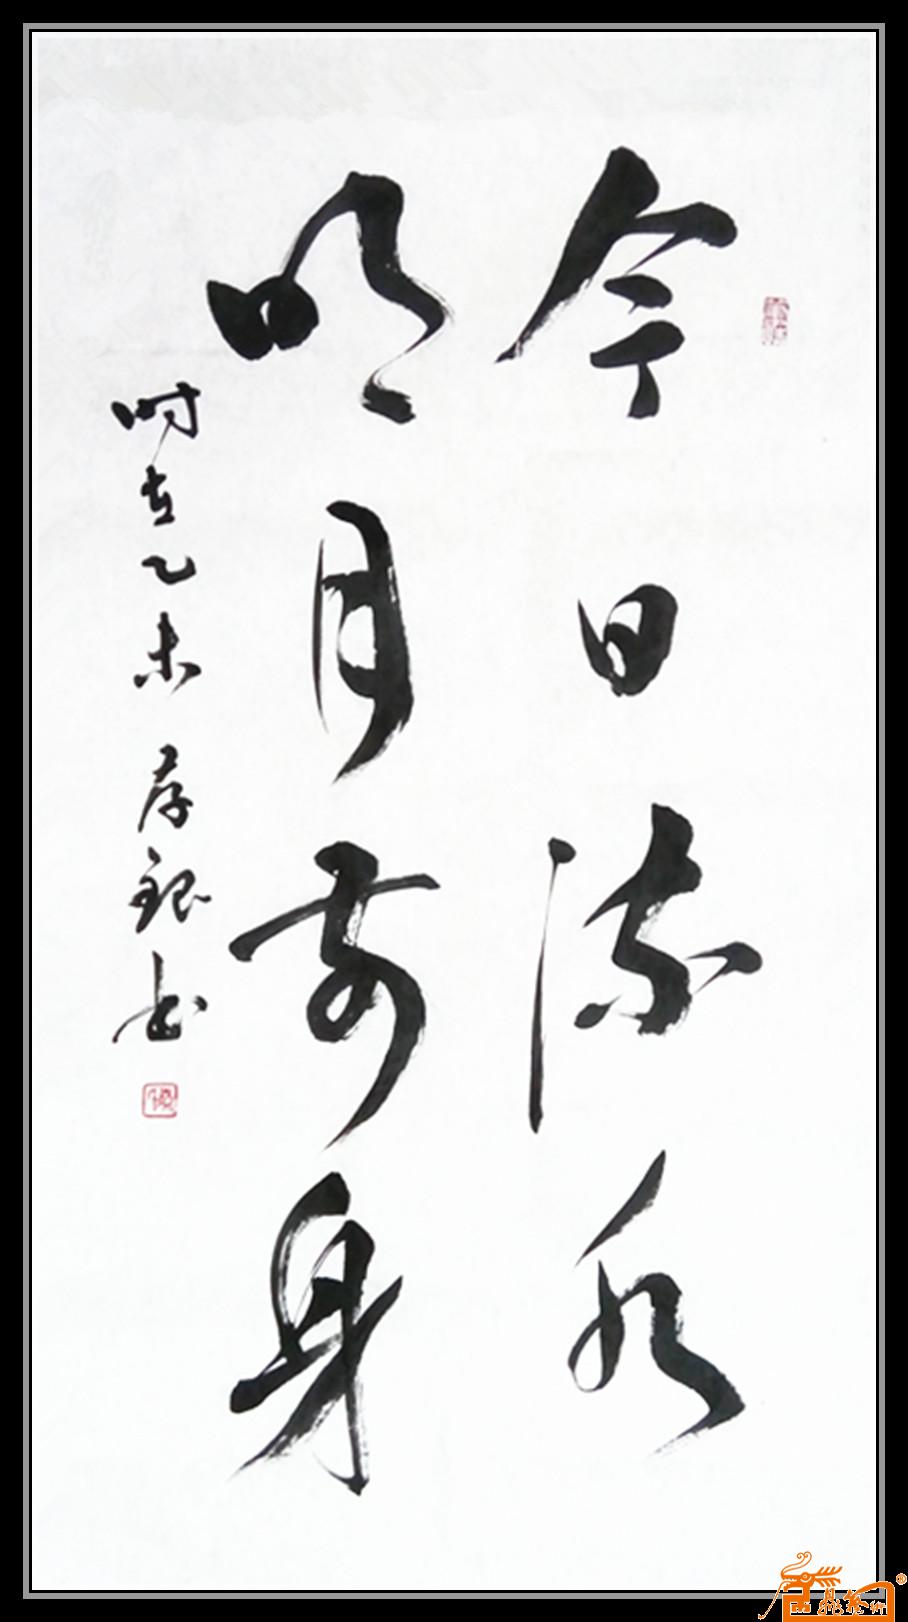 今日流水
明月前身
时在乙未 存银书